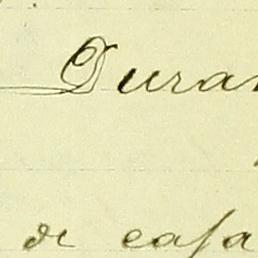 Duran
de casa